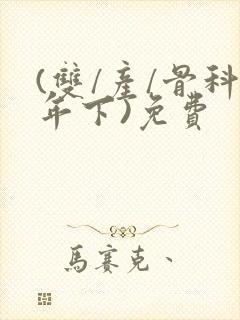 (雙/產/骨科
年下)免費
馬賽克、